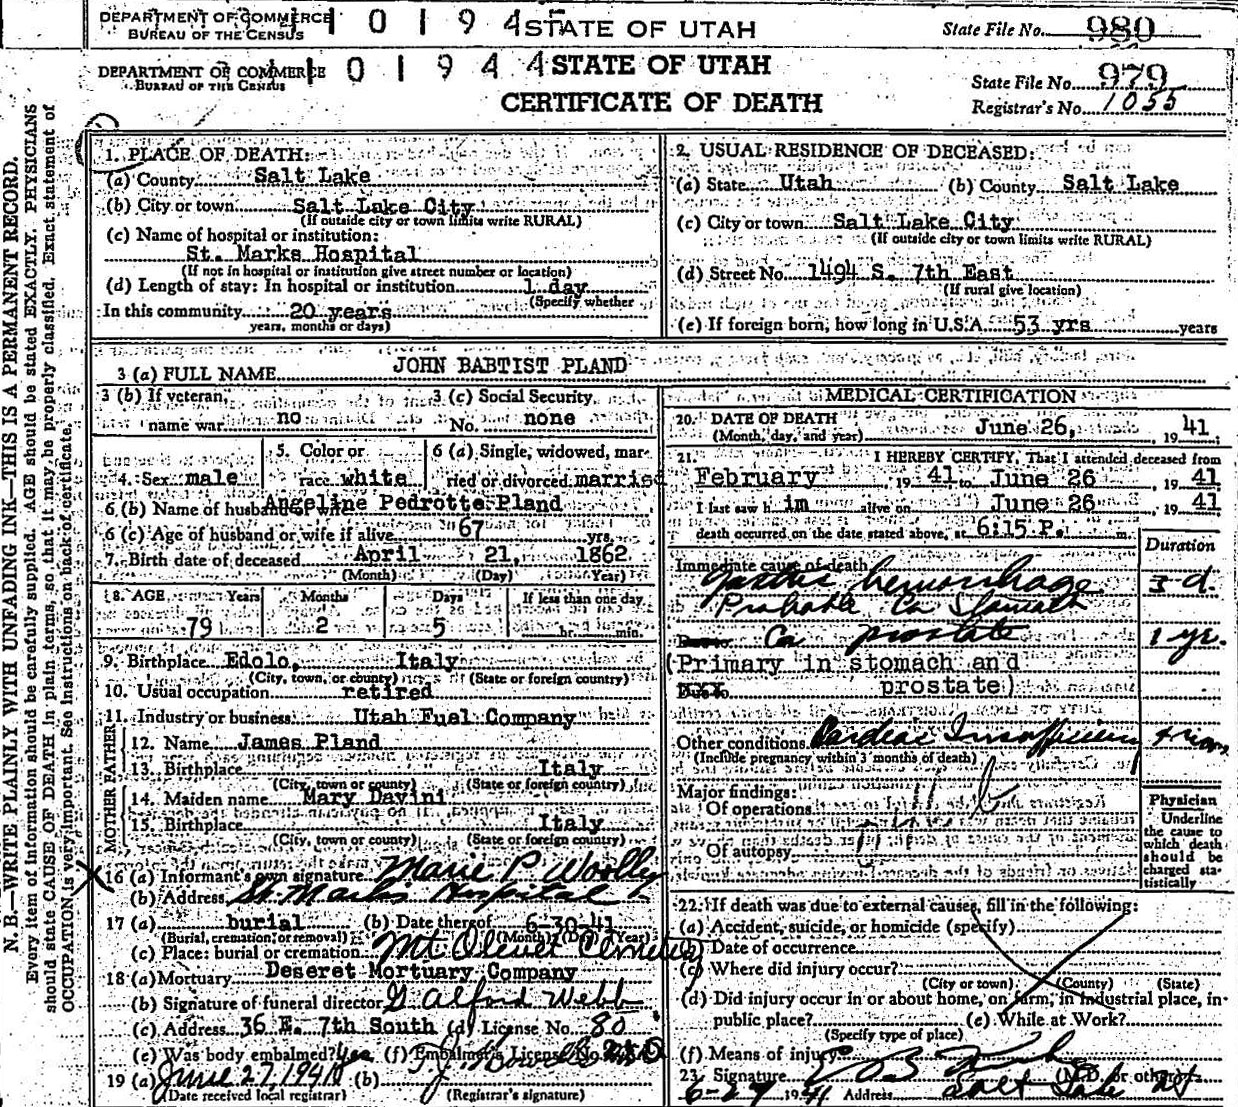 DEPARTMENT OF COMMERCE 1 0 1 9 4 5 STATE OF UTAH State File No. 980
BUREAU OF THE CENSUS
DEPARTMENT OF COMMERCE 1 0 1 9 4 4 STATE OF UTAH State File No. 979
BUREAU OF THE CENSUS
CERTIFICATE OF DEATH Registrar's No. 1055
N. B.—WRITE PLAINLY WITH UNFADING INK—THIS IS A PERMANENT RECORD.
Every item of information should be carefully supplied. AGE should be stated EXACTLY. PHYSICIANS
should state CAUSE OF DEATH in plain terms, so that it may be properly classified. Exact statement of
OCCUPATION is very important. See instructions on back of certificate.
1. PLACE OF DEATH:
(a) County Salt Lake
(b) City or town Salt Lake City
(If outside city or town limits write RURAL)
(c) Name of hospital or institution:
St. Marks Hospital
(If not in hospital or institution give street number or location)
(d) Length of stay: In hospital or institution 1 day
(Specify whether
In this community 20 years
years, months or days)
2. USUAL RESIDENCE OF DECEASED:
(a) State Utah (b) County Salt Lake
(c) City or town Salt Lake City
(If outside city or town limits write RURAL)
(d) Street No. 1494 S. 7th East
(If rural give location)
(e) If foreign born, how long in U.S.A. 53 yrs years
3 (a) FULL NAME JOHN BABTIST PLAND
3 (b) If veteran, 3 (c) Social Security
name war no No. none
4. Sex male 5. Color or race white 6 (a) Single, widowed, married or divorced married
6 (b) Name of husband or wife Angeline Pedrotte Pland
6 (c) Age of husband or wife if alive 67 yrs.
7. Birth date of deceased April 21, 1862
(Month) (Day) (Year)
8. AGE Years Months Days If less than one day
79 2 5 hr. min.
9. Birthplace Edolo, Italy
(City, town, or county) (State or foreign country)
10. Usual occupation retired
11. Industry or business Utah Fuel Company
FATHER
12. Name James Pland
13. Birthplace Italy
(City, town or county) (State or foreign country)
MOTHER
14. Maiden name Mary Davini
15. Birthplace Italy
(City, town or county) (State or foreign country)
16 (a) Informant's own signature Marie P Woolly
(b) Address St. Marks Hospital
17 (a) burial (b) Date thereof 6-30-41
(Burial, cremation, or removal) (Month) (Day) (Year)
(c) Place: burial or cremation Mt Olivet Cemetery
18 (a) Mortuary Deseret Mortuary Company
(b) Signature of funeral director G Alford Webb
(c) Address 36 E. 7th South (d) License No. 80
(e) Was body embalmed? Yes (f) Embalmer's License No.
19 (a) June 27, 1941 (b)
(Date received local registrar) (Registrar's signature)
MEDICAL CERTIFICATION
20. DATE OF DEATH June 26, 19 41
(Month, day, and year)
21. I HEREBY CERTIFY, That I attended deceased from
February 19 41 to June 26 19 41
I last saw h im alive on June 26 19 41
death occurred on the date stated above, at 6:15 P. m.
Duration
Immediate cause of death
Gastric hemorrhage 3 d.
Probable Ca Stomach
Ca prostate 1 yr.
(Primary in stomach and
prostate)
Other conditions Cardiac Insufficiency
(Include pregnancy within 3 months of death)
Major findings:
Of operations
Of autopsy
Physician
Underline
the cause to
which death
should be
charged sta-
tistically
22. If death was due to external causes, fill in the following:
(a) Accident, suicide, or homicide (specify)
(b) Date of occurrence
(c) Where did injury occur?
(City or town) (County) (State)
(d) Did injury occur in or about home, on farm, in industrial place, in
public place? (e) While at Work?
(Specify type of place)
(f) Means of injury
23. Signature (M.D. or other)
6-27 1941 Address Salt Lake